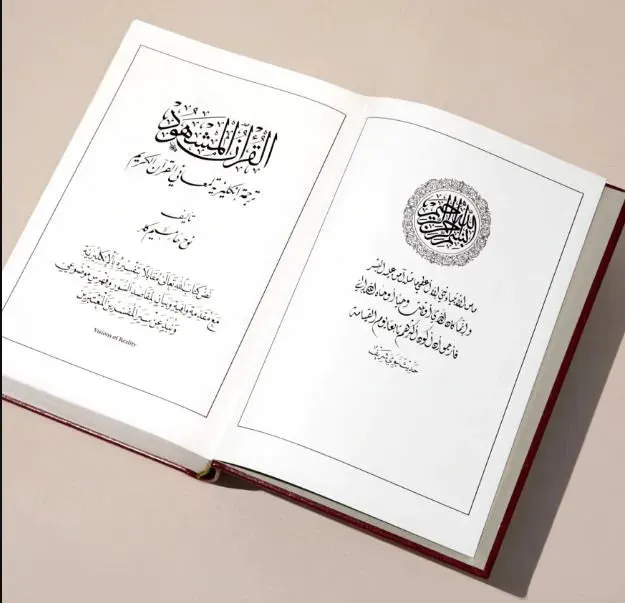 بسم الله الرحمن الرحيم
ما من الأنبياء نبي إلا أعطي ما مثله آمن عليه البشر
وإنما كان الذي أوتيت وحيا أوحاه الله إلي
فأرجو أن أكون أكثرهم تابعا يوم القيامة
حديث نبوي شريف
القرآن المشهود
ترجمة إنكليزية لمعاني القرآن الكريم
تأليف
نوح حاميم كلر
نص كتاب الله تعالى مقابلا بتفسيره بالإنكليزية
مع مقدمة وافية وبيان لمقاصد السور وفهرس موضوعي
عن سير المفسرين المعتمدين
Visions of Reality